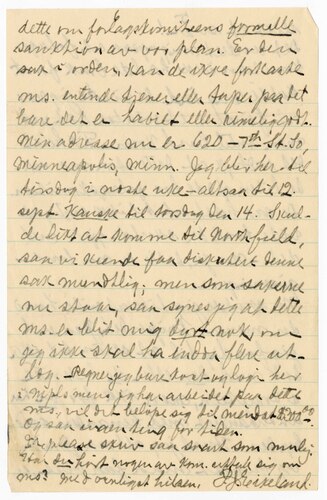 dette om forlagskomiteens formelle
sanktion av vor plan. Er den
sak i orden, kan de ikke forkaste
ms. enten de tjener eller taper paa det
bare det er habilt eller rimelig
Min adresse nu er 620 – 7th St. So,
Minneapolis, Minn. Jeg blir her til
tirsdag i næste uke – altsaa til 12.
sept. Kanske til torsdag den 14. Skul-
de likt at komme til Northfield,
saa vi kunde faa diskutert denne
sak mundtlig; men som sakerne
nu staar, saa synes jeg at dette
ms. er blit mig dyrt nok, om
jeg ikke skal ha endda flere ut-
læg. Regner jeg bare kost og logi her
i Mpls mens jeg har arbeidet paa dette
ms, vil det beløpe sig til mindst $200.00
Og saa ingen ting for tiden.
please skriv saa snart som mulig.
Har du hört nogen av kom. uttale sig om
ms? Med venligst hilsen,